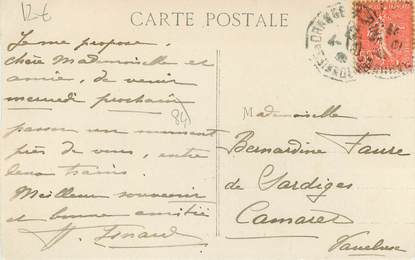 12€
CARTE POSTALE
Je me propose,
chère Mademoiselle et
amie, de venir
mercredi prochain
passer un moment
près de vous, entre
deux trains.
Meilleur souvenir
et bonne amitié
84
Mademoiselle
Bernardine Faure
de Sardiges
Camaret
Vaucluse
ORANGE